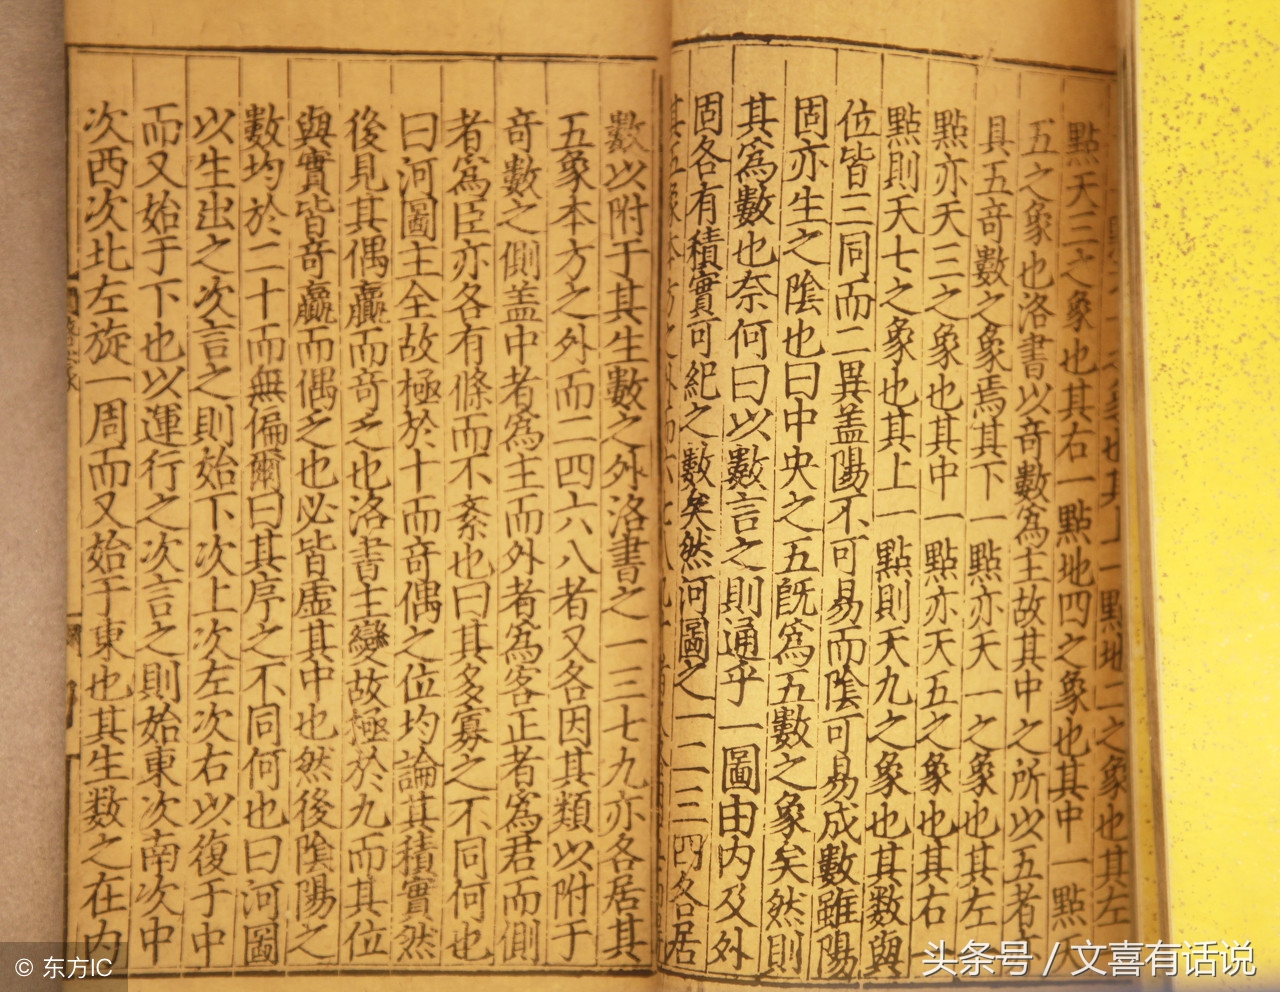 之象也其上一點地二之象也其左
點天三之象也其右一點地四之象也其中一點天
五之象也洛書以奇數為主故其中之所以五者
具五奇數之象焉其下一點亦天一之象也其左
點亦天三之象也其中一點亦天五之象也其右
點則天七之象也其上一點則天九之象也其數與
位皆三同而二異蓋陽不可易而陰可易成數雖陽
固亦生之陰也曰中央之五既為五數之象矣然則
其為數也奈何曰以數言之則通乎一圖由內及外
固各有積實可紀之數矣然河圖之一二三四各居
其五象本方之外而六七八九
數以附于其生數之外洛書之一三七九亦各居其
五象本方之外而二四六八者又各因其類以附于
奇數之側蓋中者為主而外者為客正者為君而側
者為臣亦各有條而不紊也曰其多寡之不同何也
曰河圖主全故極於十而奇偶之位均論其積實然
後見其偶贏而奇乏也洛書主變故極於九而其位
與實皆奇贏而偶乏也必皆虛其中也然後陰陽之
數均於二十而無偏爾曰其序之不同何也曰河圖
以生出之次言之則始下次上次左次右以復于中
而又始于下也以運行之次言之則始東次南次中
次西次北左旋一周而又始于東也其生數之在內
© 东方IC
头条号 / 文喜有话说